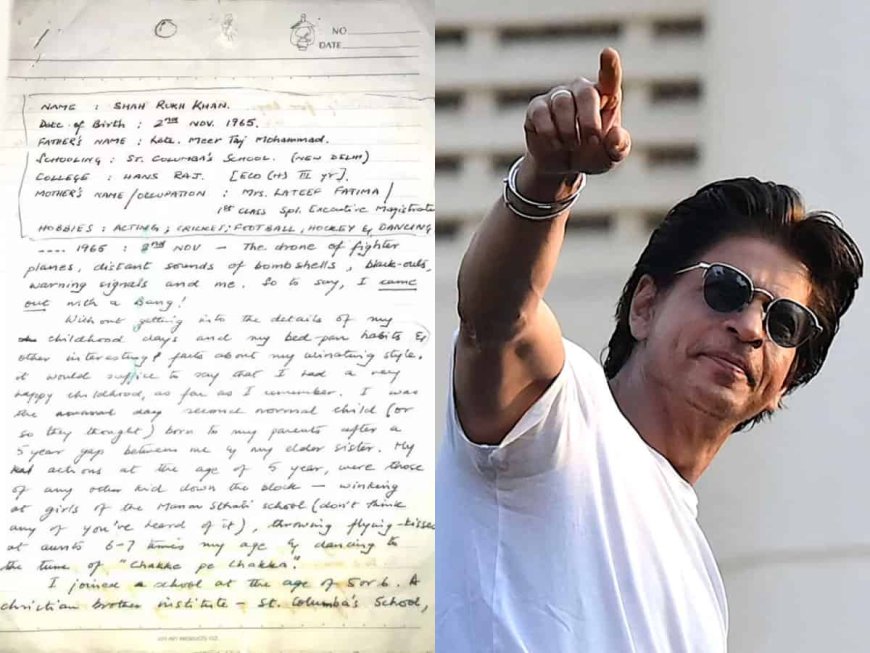 NO
DATE
NAME : SHAH RUKH KHAN.
Date of Birth : 2nd NOV. 1965.
FATHER'S NAME : Late. Meer Taj Mohammad.
SCHOOLING : ST. COLUMBA'S SCHOOL. (NEW DELHI)
COLLEGE : HANS RAJ. [ECO (HS III yr].
MOTHER'S NAME/OCCUPATION : MRS. LATEEF FATIMA/
1st CLASS Spl. Executive Magistrate
HOBBIES : ACTING, CRICKET, FOOTBALL, HOCKEY & DANCING
.... 1965 : 2nd NOV — The drone of fighter
planes, distant sounds of bombshells, black-outs,
warning signals and me. So to say, I came
out with a Bang!
Without getting into the details of my
childhood days and my bed-pan habits &
other interesting facts about my urinating style,
it would suffice to say that I had a very
happy childhood, as far as I remember. I was
the normal day second normal child (or
so they thought) born to my parents after a
5 year gap between me & my elder sister. My
actions at the age of 5 year, were those
of any other kid down the block — winking
at girls of the Manav Sthali school (don't think
any of you've heard of it), throwing flying-kisses
at aunts 6-7 times my age & dancing to
the tune of "Chakke pe Chakka".
I joined a school at the age of 5 or 6. A
christian brother institute — St. Columba's School,